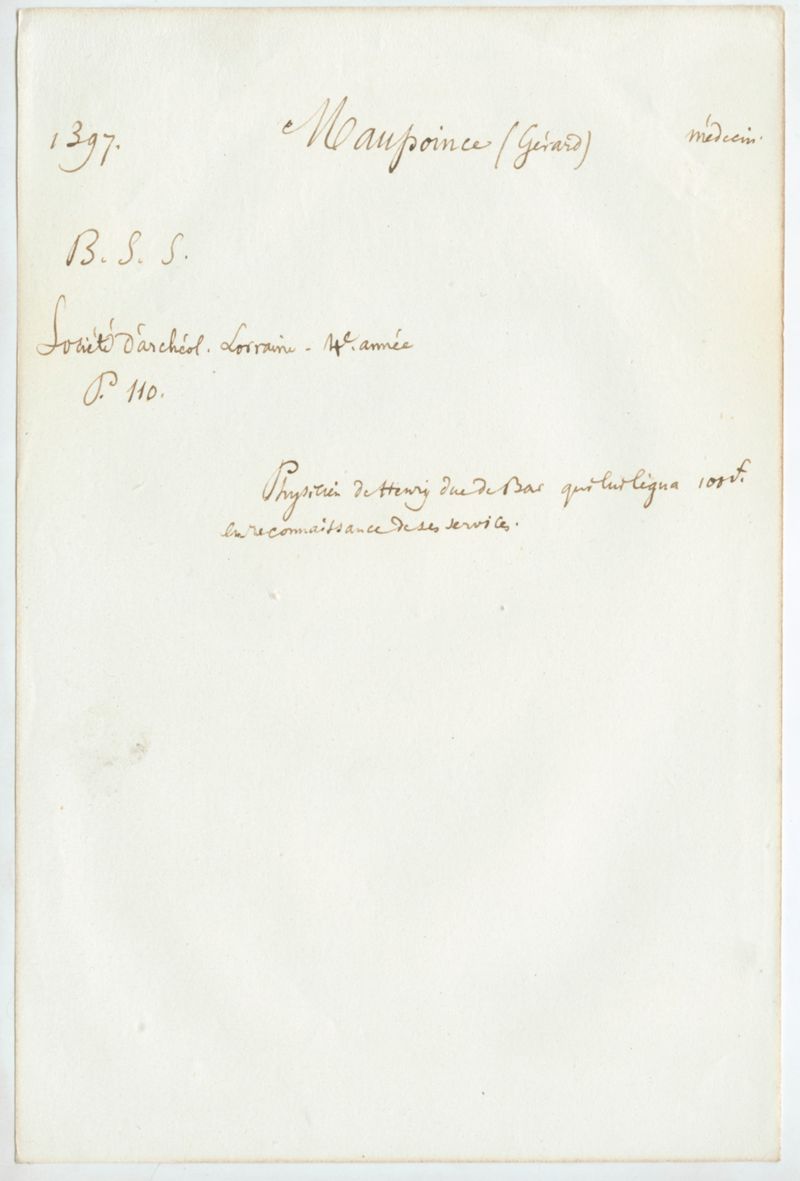 1397. Maupoince (Gérard) médecin.
B. S. S.
Société d'archéol. Lorraine - 4e. année
P. 110.
Physicien de Henry duc de Bar qui lui légua 100 f.
en reconnaissance de ses services.